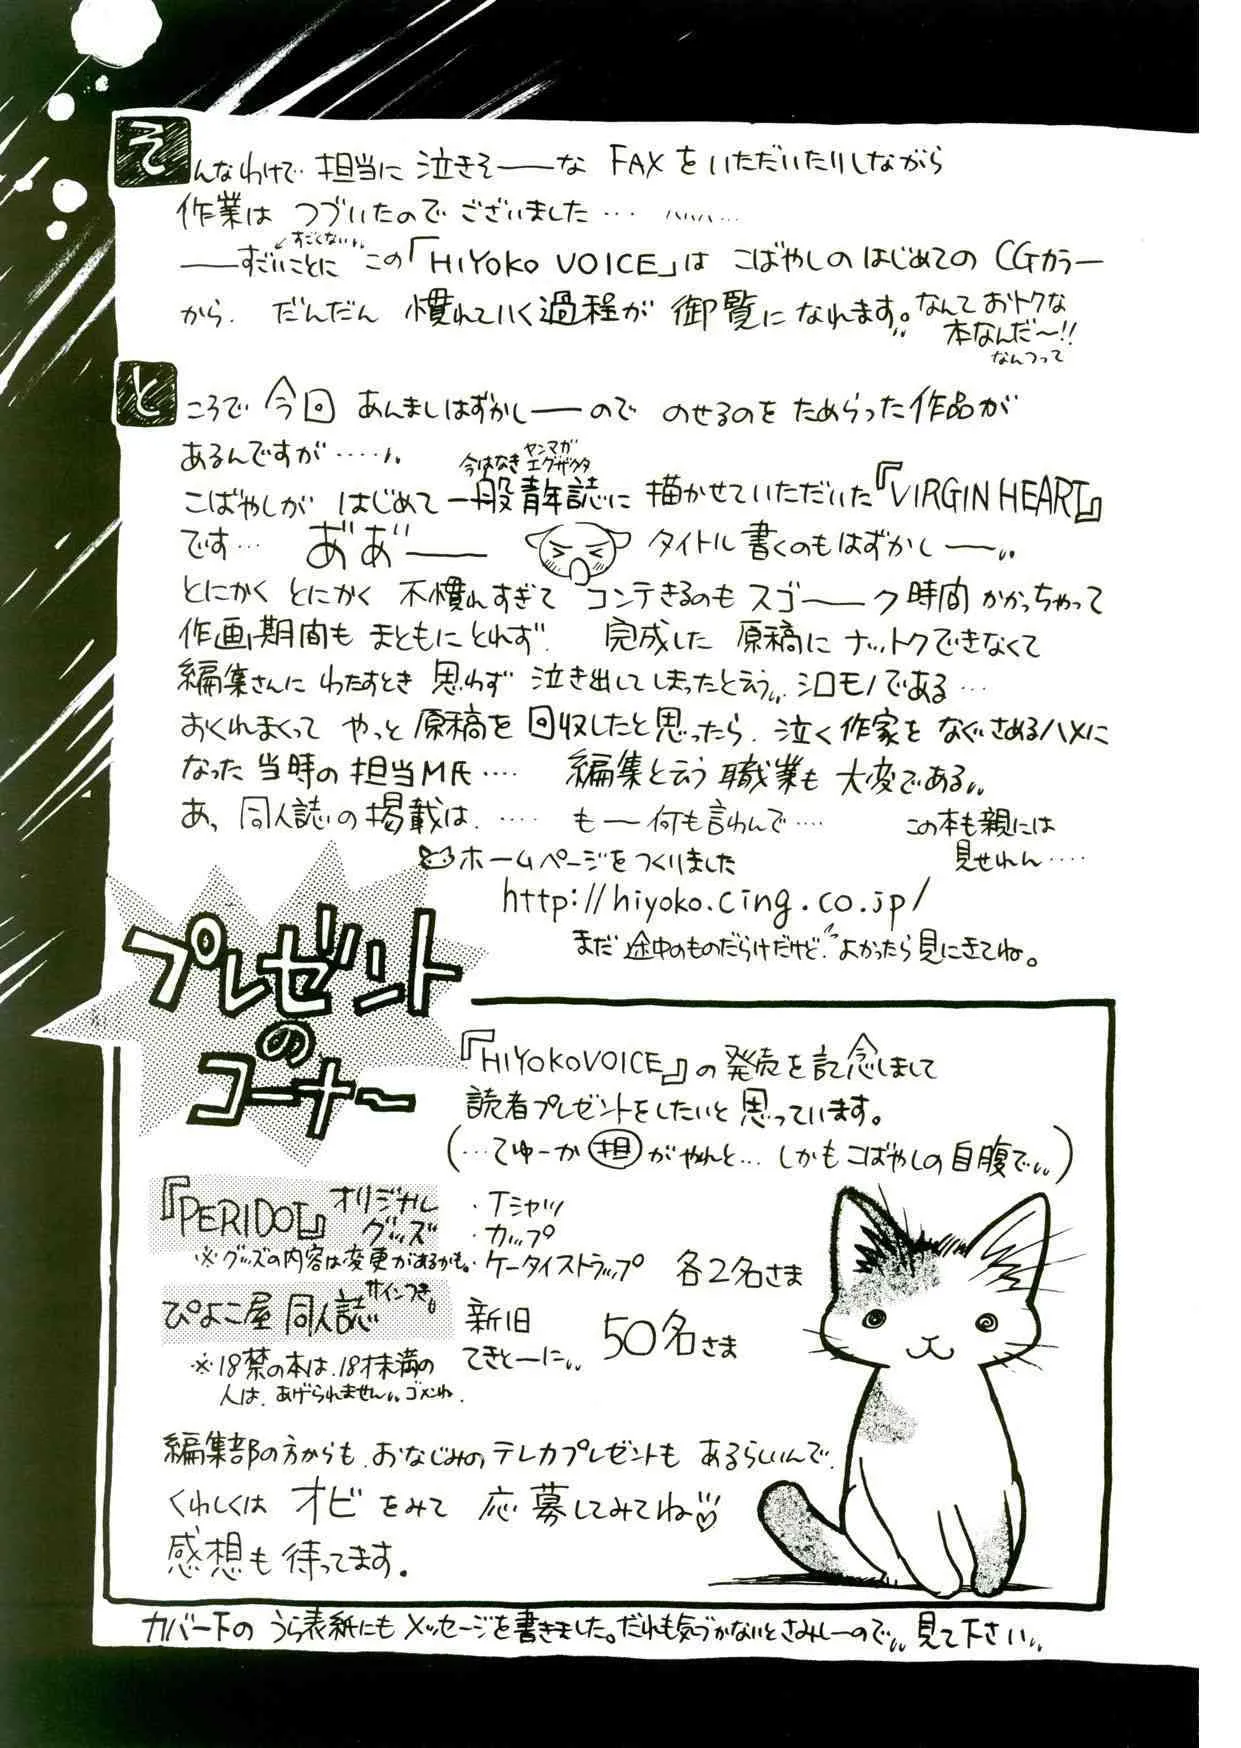 そんなわけで 担当に 泣きそーーな FAXをいただいたりしながら
作業は つづいたのでございました‥‥ ‥‥
すごくない
――すごいことに この「HIYOKO VOICE」は こばやしの はじめての CGカラー
から. だんだん 慣れていく過程が 御覧になれます。なんて おトクな
本なんだ〜!!
なんつって
ところで 今回 あんましはずかしーーので のせるのを ためらった作品が
あるんですが‥‥‥
今はなき ヤンマガエグザクタ
こばやしが はじめて 一般青年誌に 描かせていただいた『VIRGIN HEART』
です… あ゛あ゛ーー タイトル書くのも はずかしーー
とにかく とにかく 不慣れすぎて コンテきるのも スゴーーク 時間かかっちゃって
作画期間も まともに とれず. 完成した 原稿に ナットクできなくて
編集さんに わたすとき 思わず 泣き出してしまったと云う シロモノである…
おくれまくって やっと 原稿を 回収したと思ったら. 泣く作家を なぐさめるハメに
なった 当時の 担当M氏‥‥ 編集と云う 職業も 大変である
あ、同人誌の掲載は.‥‥‥ もー何も言わんで‥‥
この本も親には
見せれん‥‥
ホームページをつくりました
http://hiyoko.cing.co.jp/
まだ 途中のものだらけだけど. よかったら 見にきてね。
プレゼント
の
コーナ〜
『HIYOKO VOICE』の 発売を 記念しまして
読者プレゼントをしたいと 思っています。
(…てゆーか 担 がやれと… しかも こばやしの 自腹で)
『PERIDOT』オリジナルグッズ
・Tシャツ
・カップ
・ケータイストラップ 各2名さま
※グッズの内容は変更があるかも。
ぴよこ屋 同人誌 サインつき。
新旧
てきとーに 50名さま
※18禁の本は. 18才未満の
人は. あげられません ゴメンね.
編集部の方からも. おなじみの テレカプレゼントも あるらしいんで.
くわしくは オビ をみて 応募してみてね♡
感想も 待ってます。
カバー下の うら表紙にも メッセージを書きました。だれも気づかないと さみしーので 見て下さい